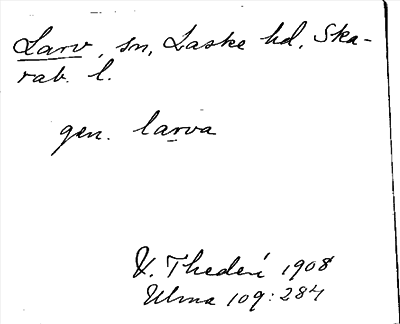 Larv, sn, Laske hd, Ska-
rab. l.
gen. larva
V. Thedeni 1908
Ulma 109:284